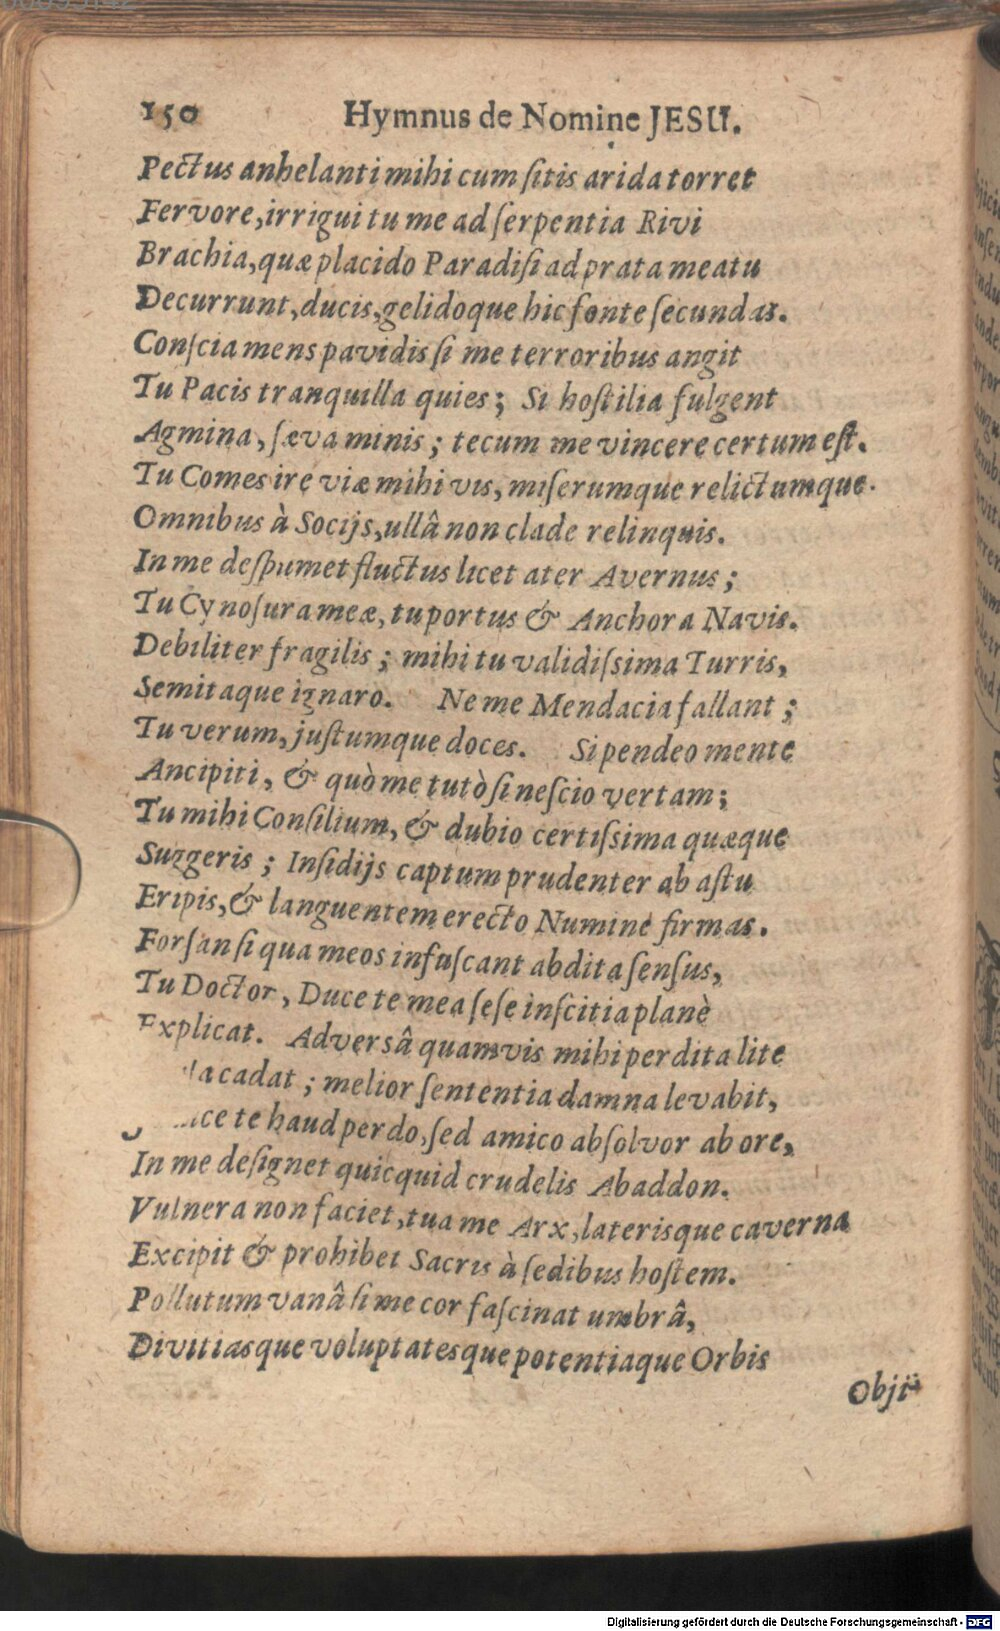 150 Hymnus de Nomine JESU.
Pectus anhelanti mihi cum ſitis arida torret
Fervore, irrigui tu me ad ſerpentia Rivi
Brachia, quæ placido Paradiſi ad prata meatu
Decurrunt, ducis, gelidoque hic fonte ſecundas.
Conſcia mens pavidis ſi me terroribus angit
Tu Pacis tranquilla quies; Si hoſtilia fulgent
Agmina, ſæva minis; tecum me vincere certum eſt.
Tu Comes ire viæ mihi vis, miſerumque relictumque.
Omnibus à Socijs, ullâ non clade relinquis.
In me deſpumet fluctus licet ater Avernus;
Tu Cynoſura meæ, tu portus & Anchora Navis.
Debiliter fragilis; mihi tu validiſsima Turris,
Semitaque ignaro. Ne me Mendacia fallant;
Tu verum, juſtumque doces. Si pendeo mente
Ancipiti, & quò me tutò ſi neſcio vertam;
Tu mihi Conſilium, & dubio certiſsima quæque
Suggeris; Inſidijs captum prudenter ab aſtu
Eripis, & languentem erecto Numine firmas.
Forſan ſi qua meos infuſcant abdita ſenſus,
Tu Doctor, Duce te mea ſeſe inſcitia planè
Explicat. Adversâ quamvis mihi perdita lite
cadat; melior ſententia damna levabit,
te haud perdo, ſed amico abſolvor ab ore,
In me deſignet quicquid crudelis Abaddon.
Vulnera non faciet, tua me Arx, laterisque caverna
Excipit & prohibet Sacris à ſedibus hoſtem.
Pollutum vanâ ſi me cor faſcinat umbrâ,
Divitiasque voluptatesque potentiaque Orbis
Obji-
Digitalisierung gefördert durch die Deutsche Forschungsgemeinschaft - DFG